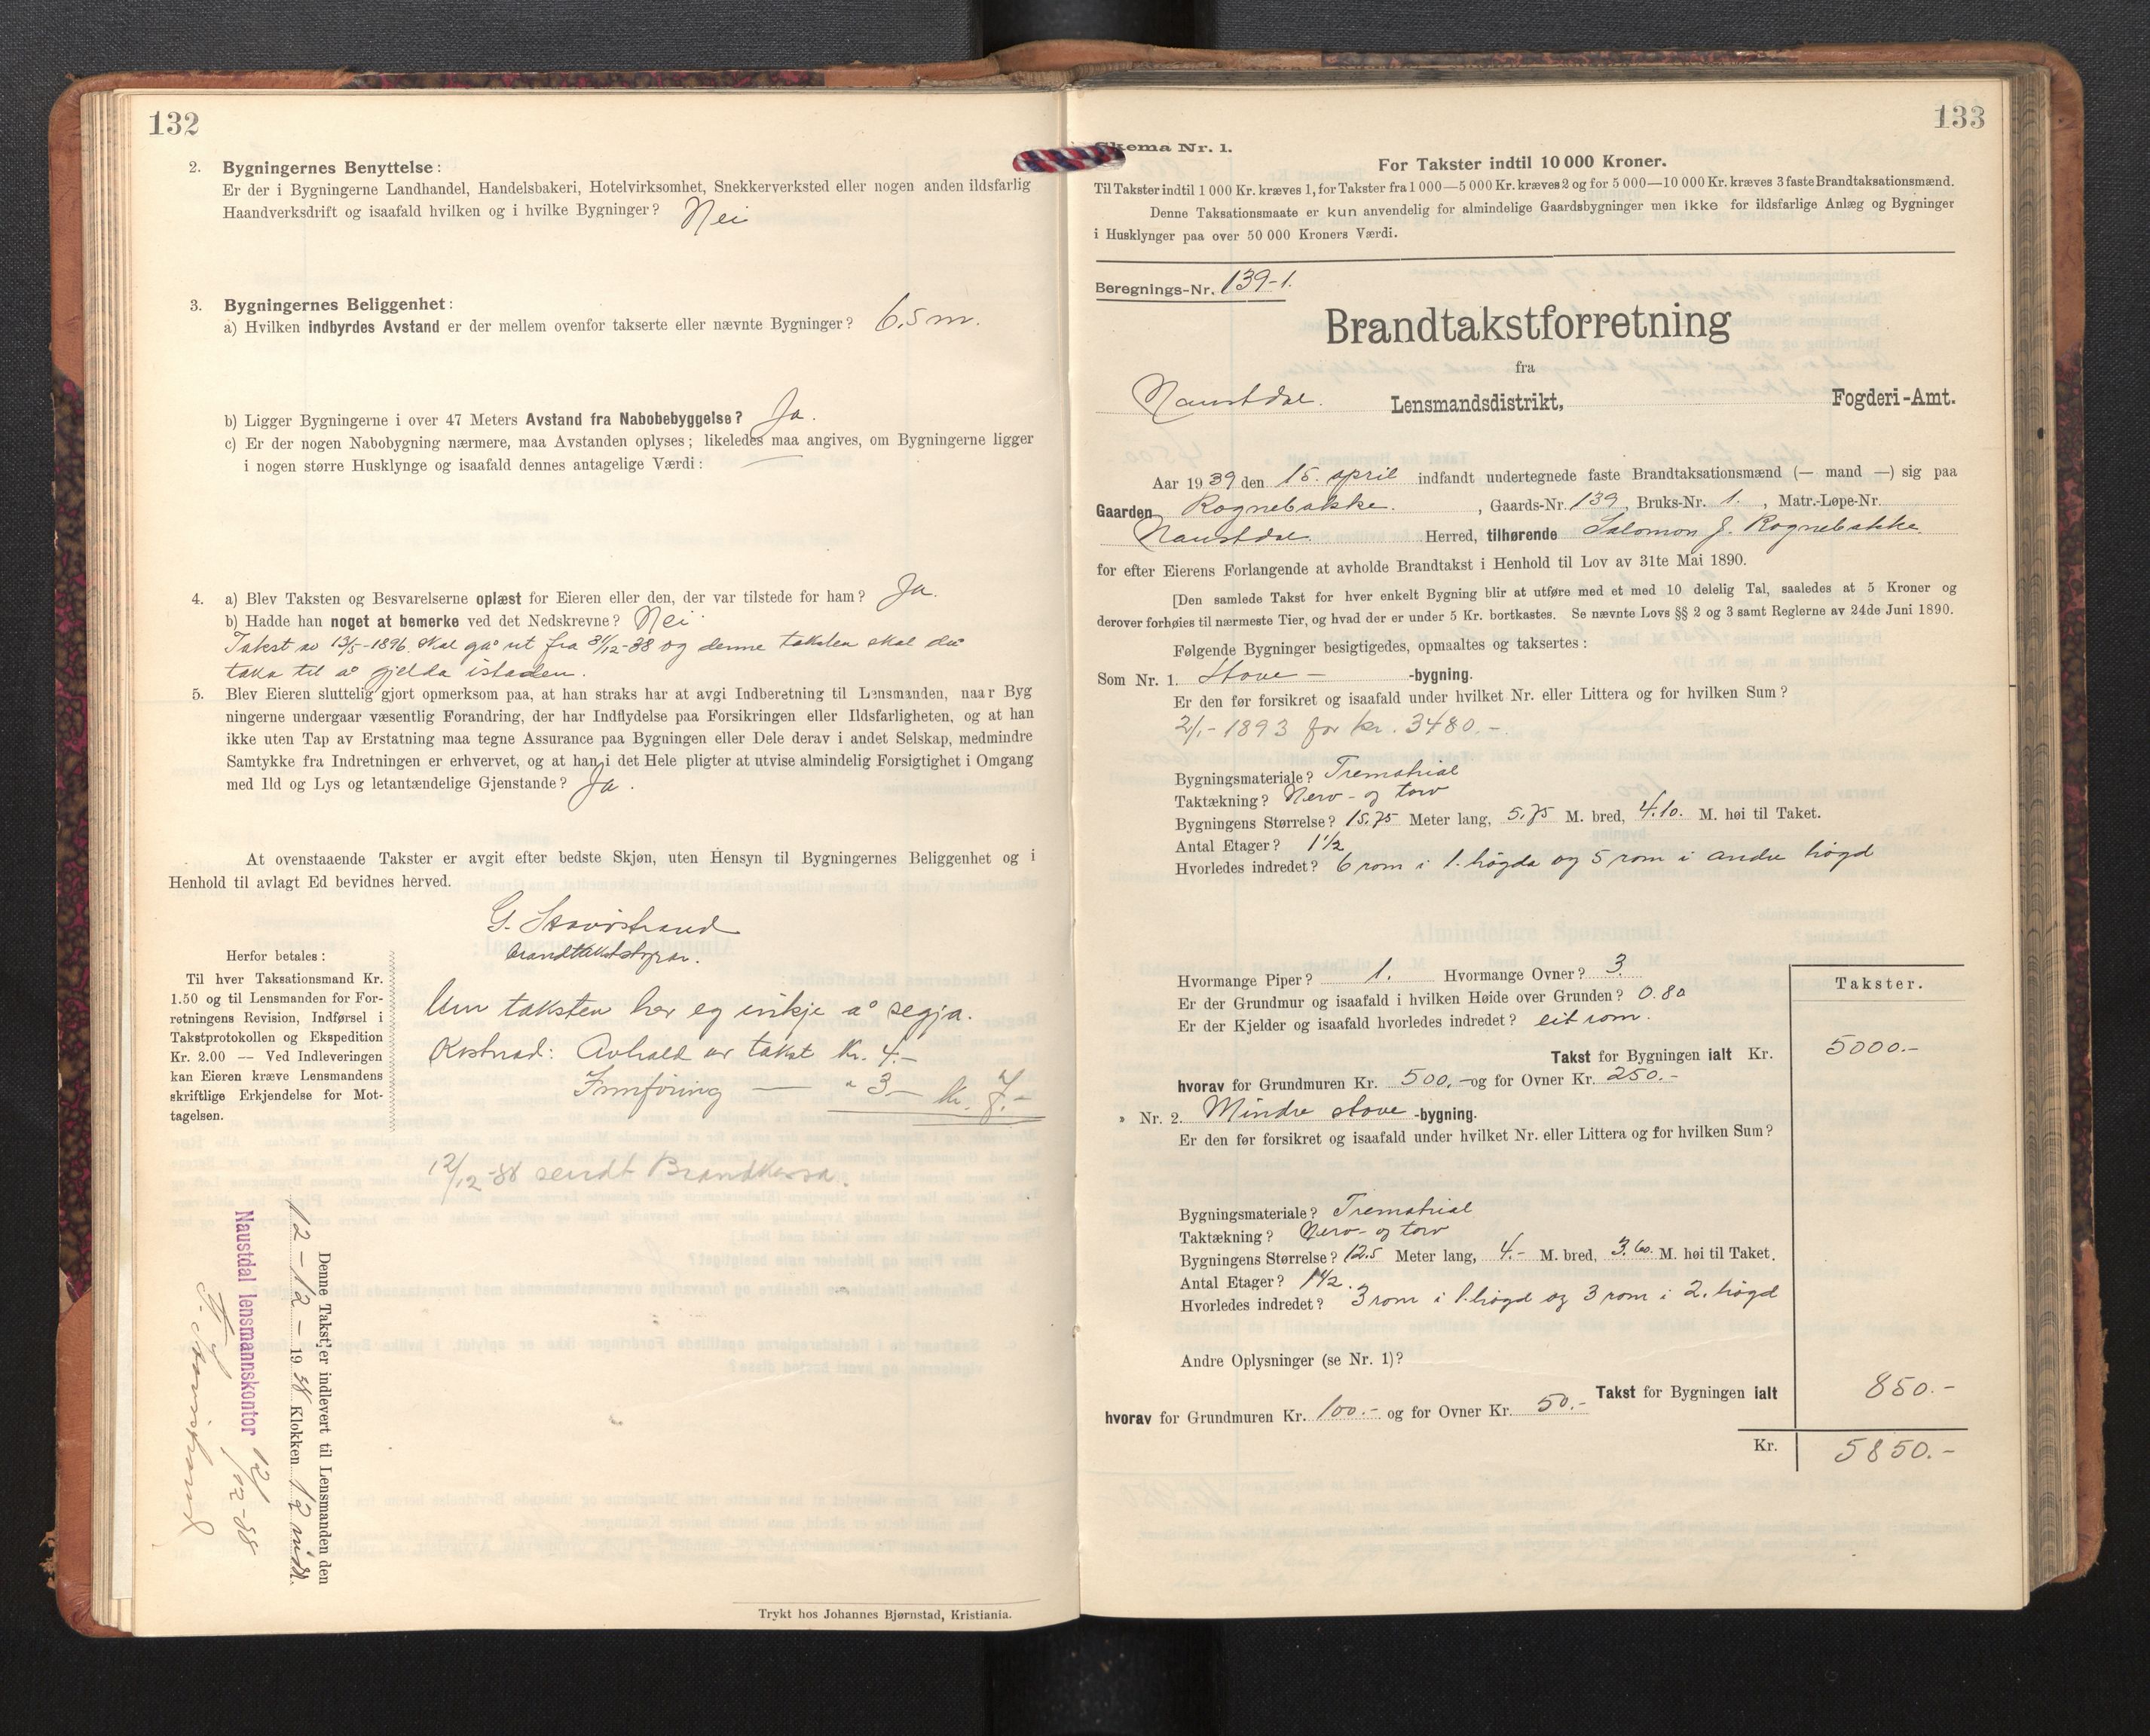 132
2. Bygningernes Benyttelse:
Er der i Bygningerne Landhandel, Handelsbakeri, Hotelvirksomhet, Snekkerverksted eller nogen anden ildsfarlig
Haandverksdrift og isaafald hvilken og i hvilke Bygninger? Nei
3. Bygningernes Beliggenhet:
a) Hvilken indbyrdes Avstand er der mellem ovenfor takserte eller nævnte Bygninger? 6,5 m.
b) Ligger Bygningerne i over 47 Meters Avstand fra Nabobebyggelse? Ja.
c) Er der nogen Nabobygning nærmere, maa Avstanden oplyses; likeledes maa angives, om Bygningerne ligger
i nogen større Husklynge og isaafald dennes antagelige Værdi: —
4. a) Blev Taksten og Besvarelserne oplæst for Eieren eller den, der var tilstede for ham? Ja.
b) Hadde han noget at bemerke ved det Nedskrevne? Nei.
Takst av 13/5-1896. skal gå ut fra 31/12-38 og denne taksten skal då
taka til å gjelda istaden.
5. Blev Eieren sluttelig gjort opmerksom paa, at han straks har at avgi Indberetning til Lensmanden, naar Byg
ningerne undergaar væsentlig Forandring, der har Indflydelse paa Forsikringen eller Ildsfarligheten, og at han
ikke uten Tap av Erstatning maa tegne Assurance paa Bygningen eller Dele derav i andet Selskap, medmindre
Samtykke fra Indretningen er erhvervet, og at han i det Hele pligter at utvise almindelig Forsigtighet i Omgang
med Ild og Lys og letantændelige Gjenstande? Ja.
At ovenstaaende Takster er avgit efter bedste Skjøn, uten Hensyn til Bygningernes Beliggenhet og i
Henhold til avlagt Ed bevidnes herved.
G. Stavøstrand
brandtakststyrar.
Herfor betales:
Til hver Taksationsmand Kr.
1.50 og til Lensmanden for For-
retningens Revision, Indførsel i
Takstprotokollen og Ekspedition
Kr. 2.00 — Ved Indleveringen
kan Eieren kræve Lensmandens
skriftlige Erkjendelse for Mot-
tagelsen.
Um taksten har eg inkje å segja.
Kostnad: Avhald av takst kr. 4.-
Innføring — " 3.- kr. 7.-
12/12-38 sendt Brandkassa.
Denne Takst er indlevert til Lensmanden den
12-12-1938 Klokken 12 midd.
Naustdal lensmannskontor 12/12-38
Trykt hos Johannes Bjørnstad, Kristiania.
133
Skema Nr. 1.
For Takster indtil 10 000 Kroner.
Til Takster indtil 1 000 Kr. kræves 1, for Takster fra 1 000—5 000 Kr. kræves 2 og for 5 000—10 000 Kr. kræves 3 faste Brandtaksationsmænd.
Denne Taksationsmaate er kun anvendelig for almindelige Gaardsbygninger men ikke for ildsfarlige Anlæg og Bygninger
i Husklynger paa over 50 000 Kroners Værdi.
Beregnings-Nr. 139-1.
Brandtakstforretning
fra
Naustdal. Lensmandsdistrikt, Fogderi-Amt.
Aar 1939 den 15. april indfandt undertegnede faste Brandtaksationsmænd (— mand —) sig paa
Gaarden Rognebakke. , Gaards-Nr. 139, Bruks-Nr. 1. , Matr.-Løpe-Nr.
Naustdal. Herred, tilhørende Salomon J. Rognebakke.
for efter Eierens Forlangende at avholde Brandtakst i Henhold til Lov av 31te Mai 1890.
[Den samlede Takst for hver enkelt Bygning blir at utføre med et med 10 delelig Tal, saaledes at 5 Kroner og
derover forhøies til nærmeste Tier, og hvad der er under 5 Kr. bortkastes. Se nævnte Lovs §§ 2 og 3 samt Reglerne av 24de Juni 1890.
Følgende Bygninger besigtigedes, opmaaltes og taksertes:
Som Nr. 1. Stove - -bygning.
Er den før forsikret og isaafald under hvilket Nr. eller Littera og for hvilken Sum?
2/1-1893 for kr. 3480.-
Bygningsmateriale? Trematrial
Taktækning? Nerv- og torv
Bygningens Størrelse? 15,75 Meter lang, 5,75 M. bred, 4.10. M. høi til Taket.
Antal Etager? 1½
Hvorledes indredet? 6 rom i 1. høgda og 5 rom i andre høgd
Hvormange Piper? 1. Hvormange Ovner? 3.
Er der Grundmur og isaafald i hvilken Høide over Grunden? 0.80
Er der Kjelder og isaafald hvorledes indredet? eit rom.
Takster.
Takst for Bygningen ialt Kr. 5000.-
hvorav for Grundmuren Kr. 500.- og for Ovner Kr. 250.-
» Nr. 2. Mindre stove -bygning.
Er den før forsikret og isaafald under hvilket Nr. eller Littera og for hvilken Sum?
Bygningsmateriale? Trematrial
Taktækning? Nerv- og torv
Bygningens Størrelse? 12.5 Meter lang, 4.- M. bred, 3.60. M. høi til Taket.
Antal Etager? 1½.
Hvorledes indredet? 3 rom i 1. høgd og 3 rom i 2. høgd
Andre Oplysninger (se Nr. 1)?
Takst for Bygningen ialt 850.-
hvorav for Grundmuren Kr. 100.- og for Ovner Kr. 50.-
Kr. 5850.-